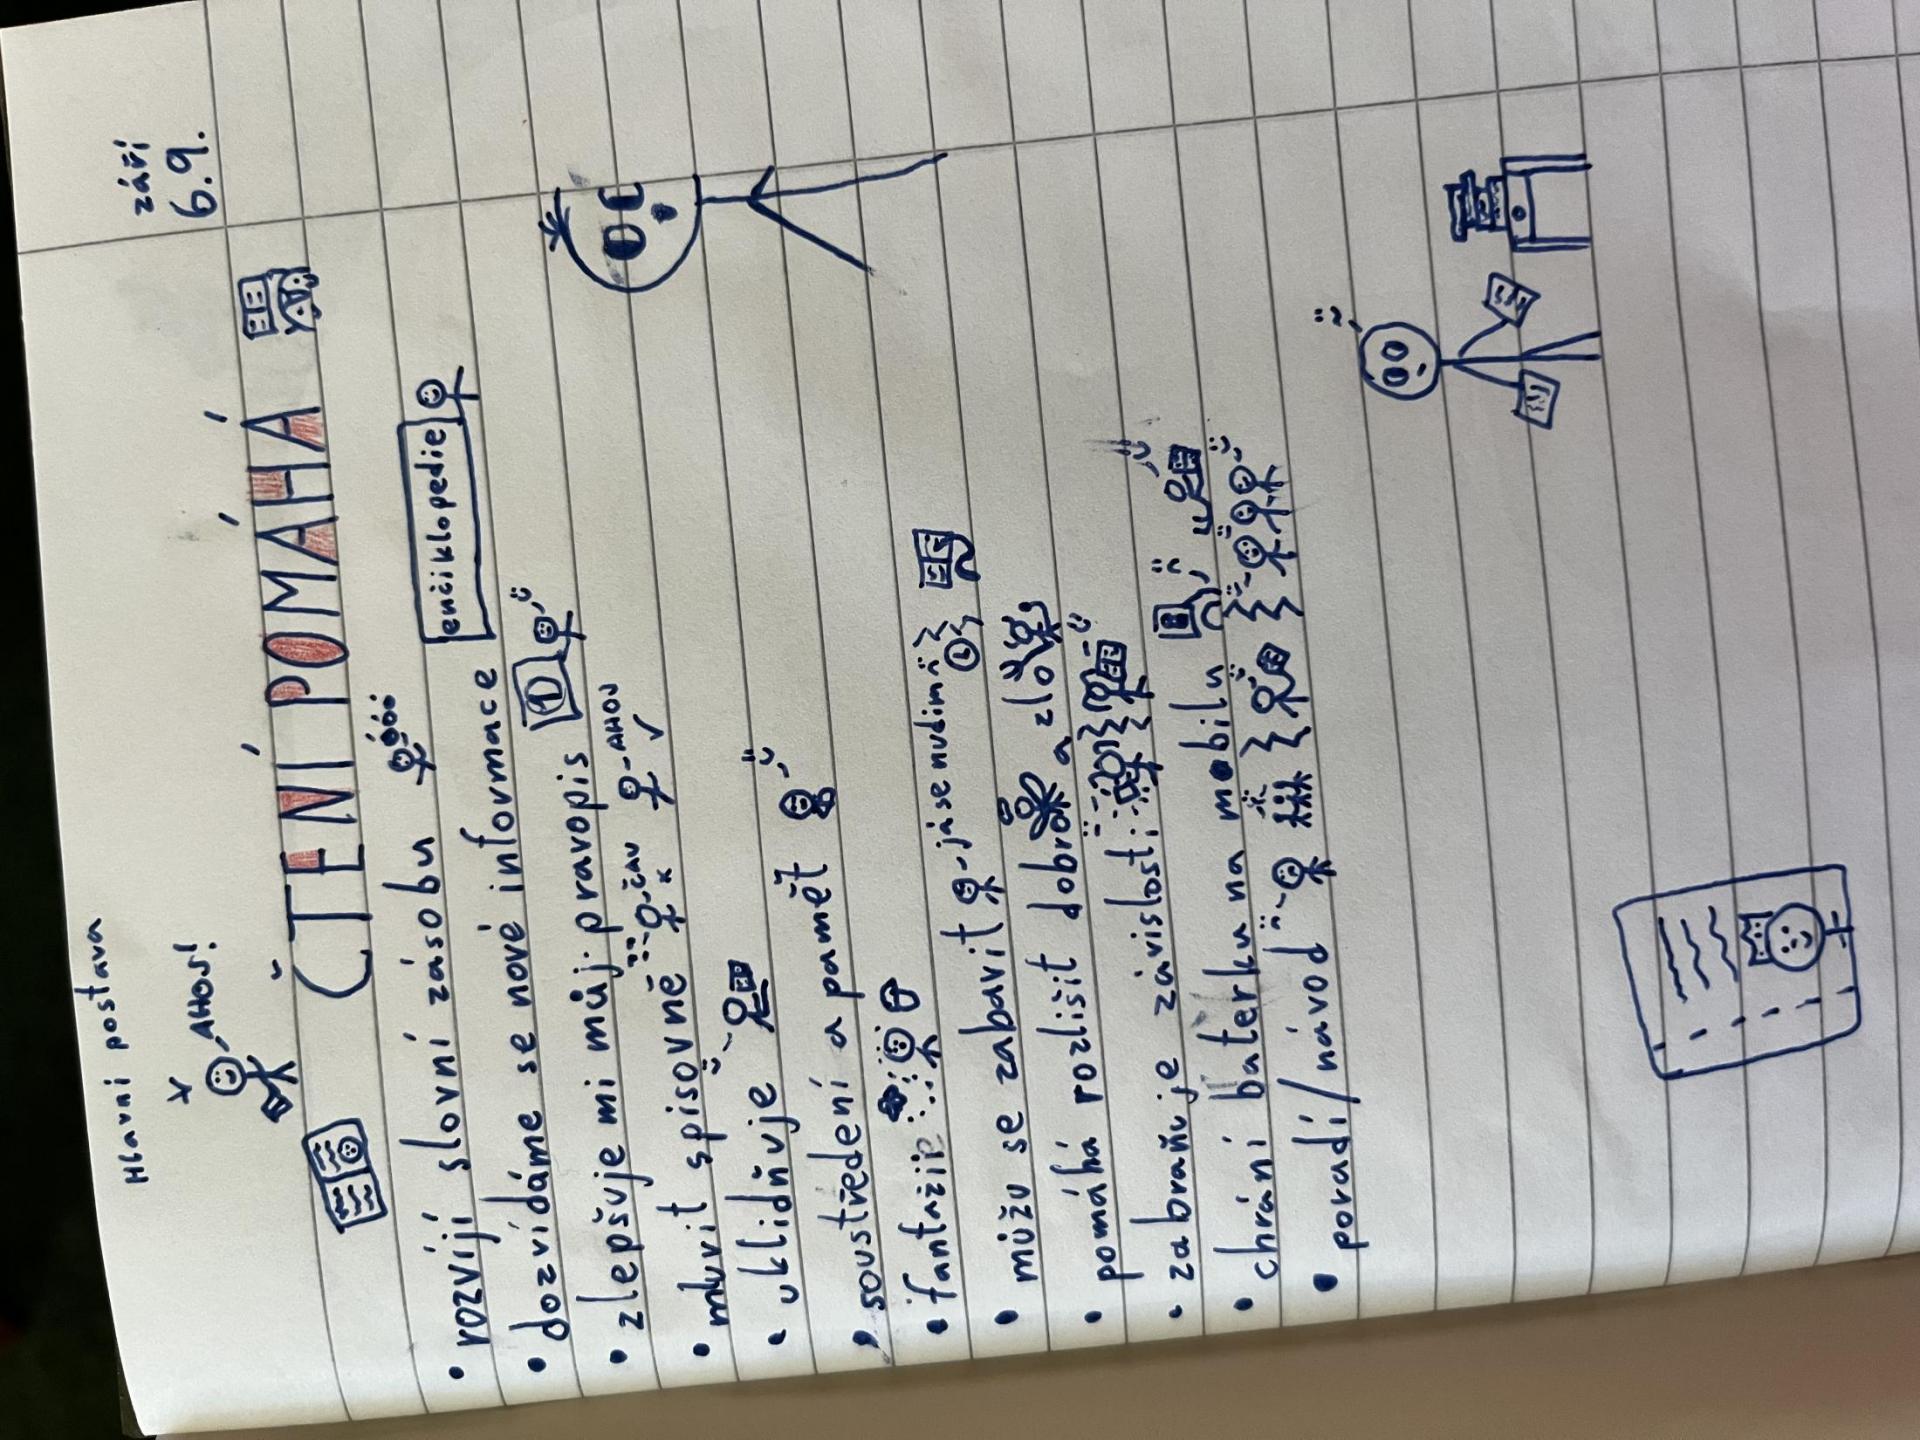 září
6.9.
Hlavní postava
AHOJ!
ČTENÍ POMÁHÁ
• rozvíjí slovní zásobu
enciklopedie
• dozvídáme se nové informace
• zlepšuje mi můj pravopis
• mluvit spisovně -ČAU -AHOJ
• uklidňuje
• soustředění a paměť
• fantazie
• můžu se zabavit -já se nudím
• pomáhá rozlišit dobro a zlo
• zabraňuje závislosti
• chrání baterku na mobilu
• poradí/návod